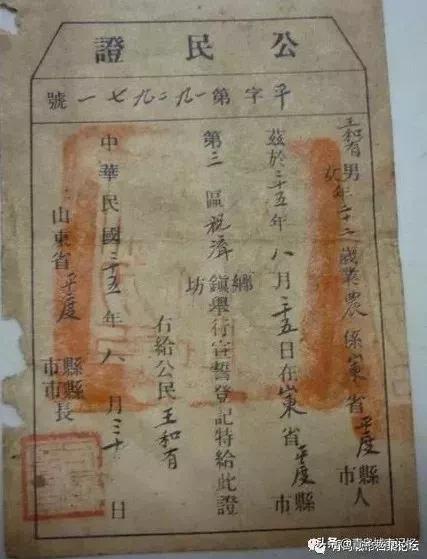 公民證
平字第一九二九七一號
王和有男女年二十二歲業農係山東省平度縣市人
茲於三十五年八月二十五日在山東省平度縣市
第三區祝溝鄉鎮坊舉行宣誓登記特給此證
右給公民王和有
中華民國三十五年八月三十日
山東省平度縣市縣市長